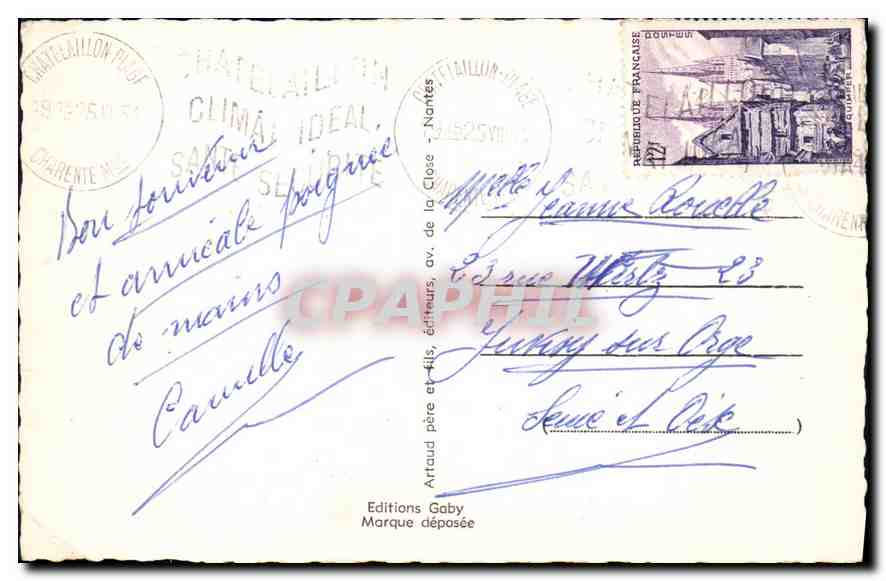 CHATELAILLON-PLAGE
CHARENTE Mme
CHATELAILLON
CLIMAT IDEAL
CHATELAILLON-PLAGE
REPUBLIQUE FRANÇAISE
POSTES
QUIMPER
12F
Bon souvenir
et amicale poignée
de mains
Camille
Artaud père et fils, éditeurs, av. de la Close - Nantes
Melle Jeanne Rouelle
23 rue Wurtz 23
Juvisy sur Orge
(Seine et Oise)
CPAPHIL
Editions Gaby
Marque déposée